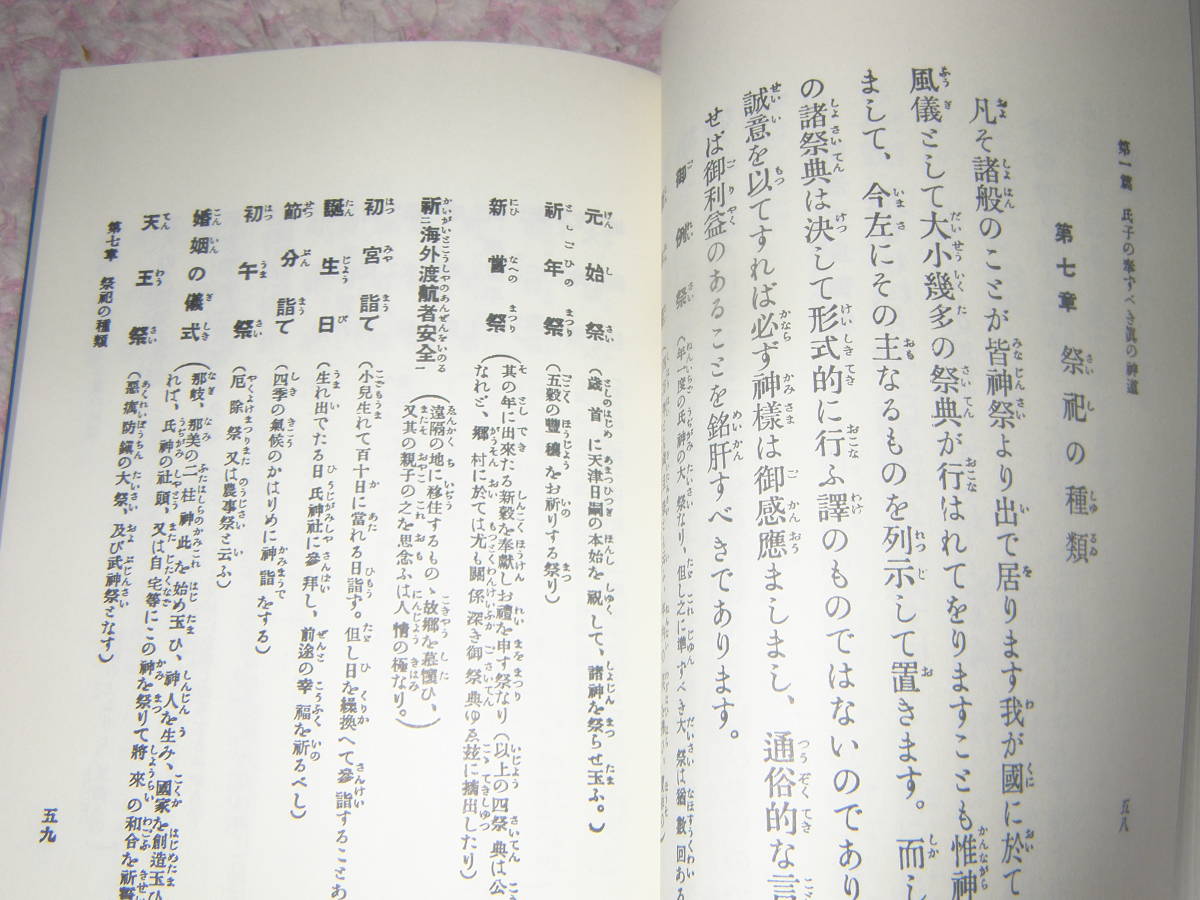 第一篇 氏子の奉ずべき眞の神道
第七章 祭祀の種類
凡そ諸般のことが皆神祭より出で居ります我が國に於て
風儀として大小幾多の祭典が行はれてをりますことも惟神
まして、今左にその主なるものを列示して置きます。而し
の諸祭典は決して形式的に行ふ譯のものではないのであり
誠意を以てすれば必ず神樣は御感應ましまし、通俗的な言
せば御利益のあることを銘肝すべきであります。
御例祭(年一度の氏神の大祭なり、但し之に準ずべき大祭は猶數回ある
五八
元始祭(歳首に天津日嗣の本始を祝して、諸神を祭らせ玉ふ。)
祈年祭(五穀の豐穰をお祈りする祭り)
新嘗祭(其の年に出來たる新穀を奉獻しお禮を申す祭なり(以上の四祭典は公
なれど、郷村に於ては尤も關係深き御祭典ゆゑ玆に摘出したり)
祈二海外渡航者安全一(遠隔の地に移住するものゝ故郷を慕懷ひ、
又其の親子の之を思念ふは人情の極なり。)
初宮詣て(小兒生れて百十日に當れる日詣ず。但し日を繰換へて參詣することあ
誕生日(生れ出でたる日氏神社に參拜し、前途の幸福を祈るべし)
節分詣て(四季の氣候のかはりめに神詣をする)
初午祭(厄除祭又は農事祭と云ふ)
婚姻の儀式(那岐、那美の二柱神此を始め玉ひ、神人を生み、國家を創造玉ひ
れば、氏神の社頭、又は自宅等にこの神を祭りて將來の和合を祈誓
天王祭(惡癘防鎭の大祭、及び武神祭となす)
第七章 祭祀の種類
五九